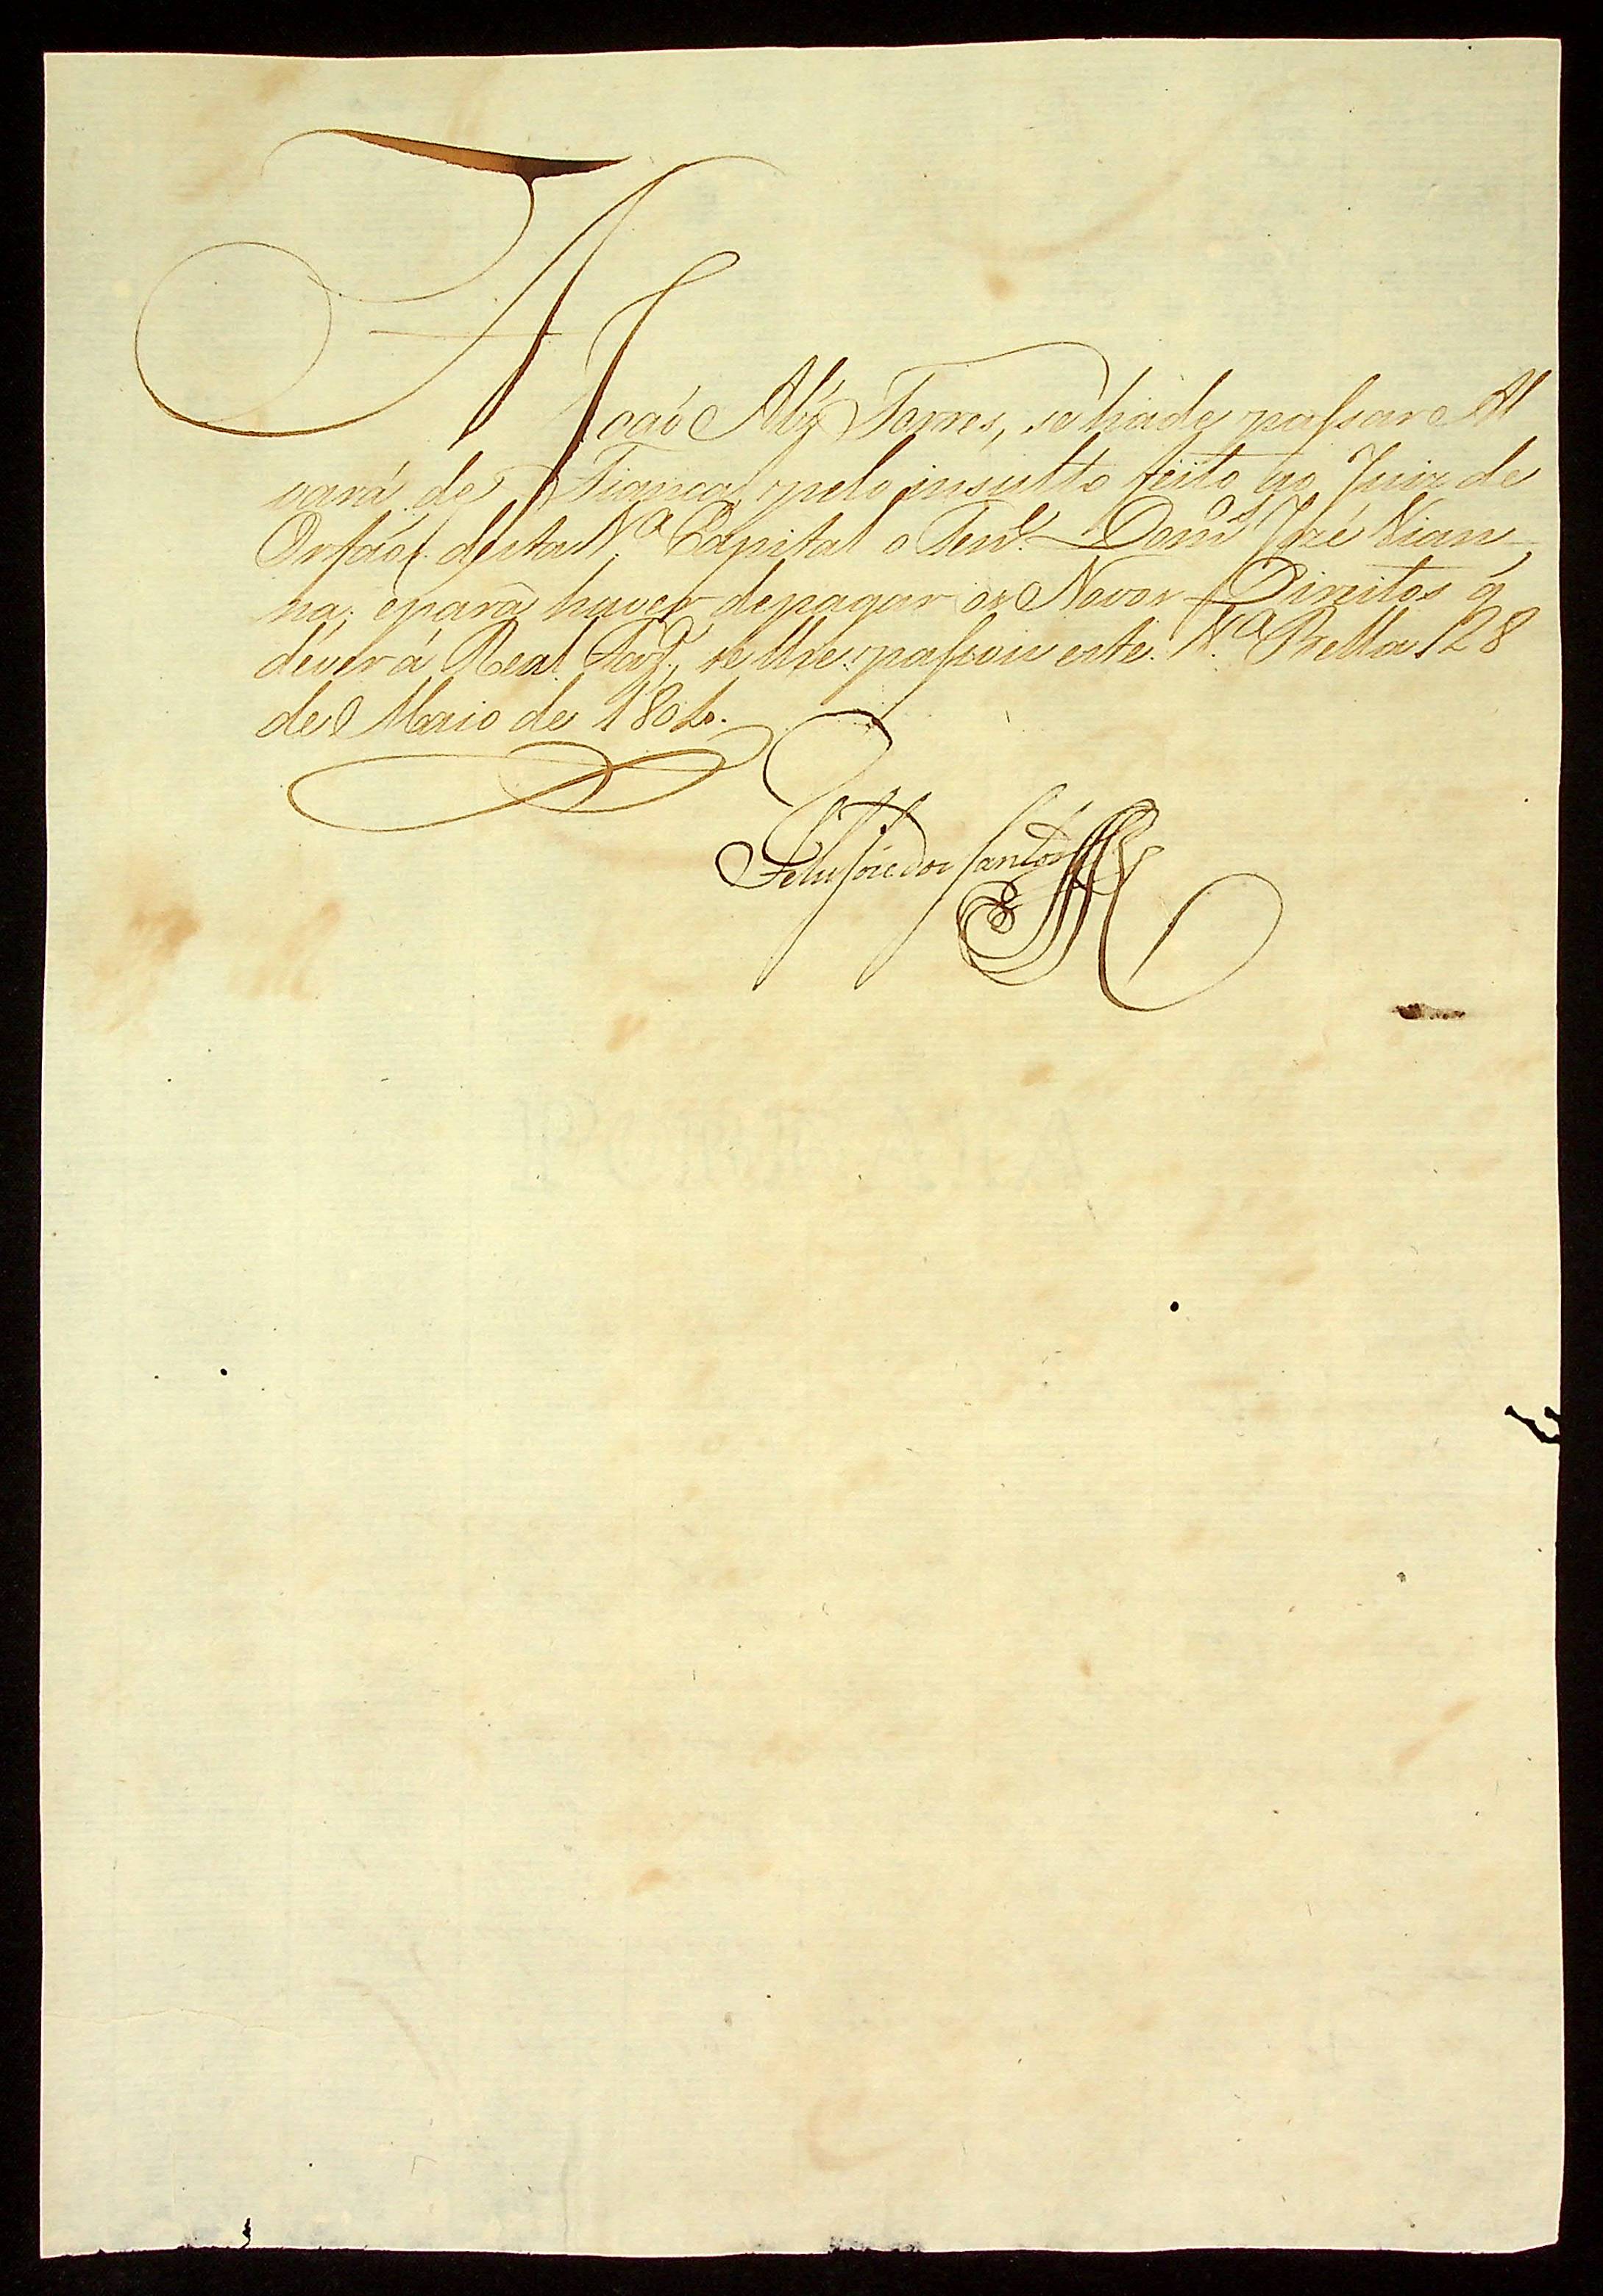 A João Alz Torres, se hade passar Al
vará de Fiança, pelo insulto feito ao Juiz de
Orfãos desta V.ª Capital o Ten.e Dom.os José Vian-
na; e para haver de pagar os Novos Direitos q
dever á Real Faz.da, se lhe passou este. V.ª Bella 28
de Maio de 180
José dos Santos